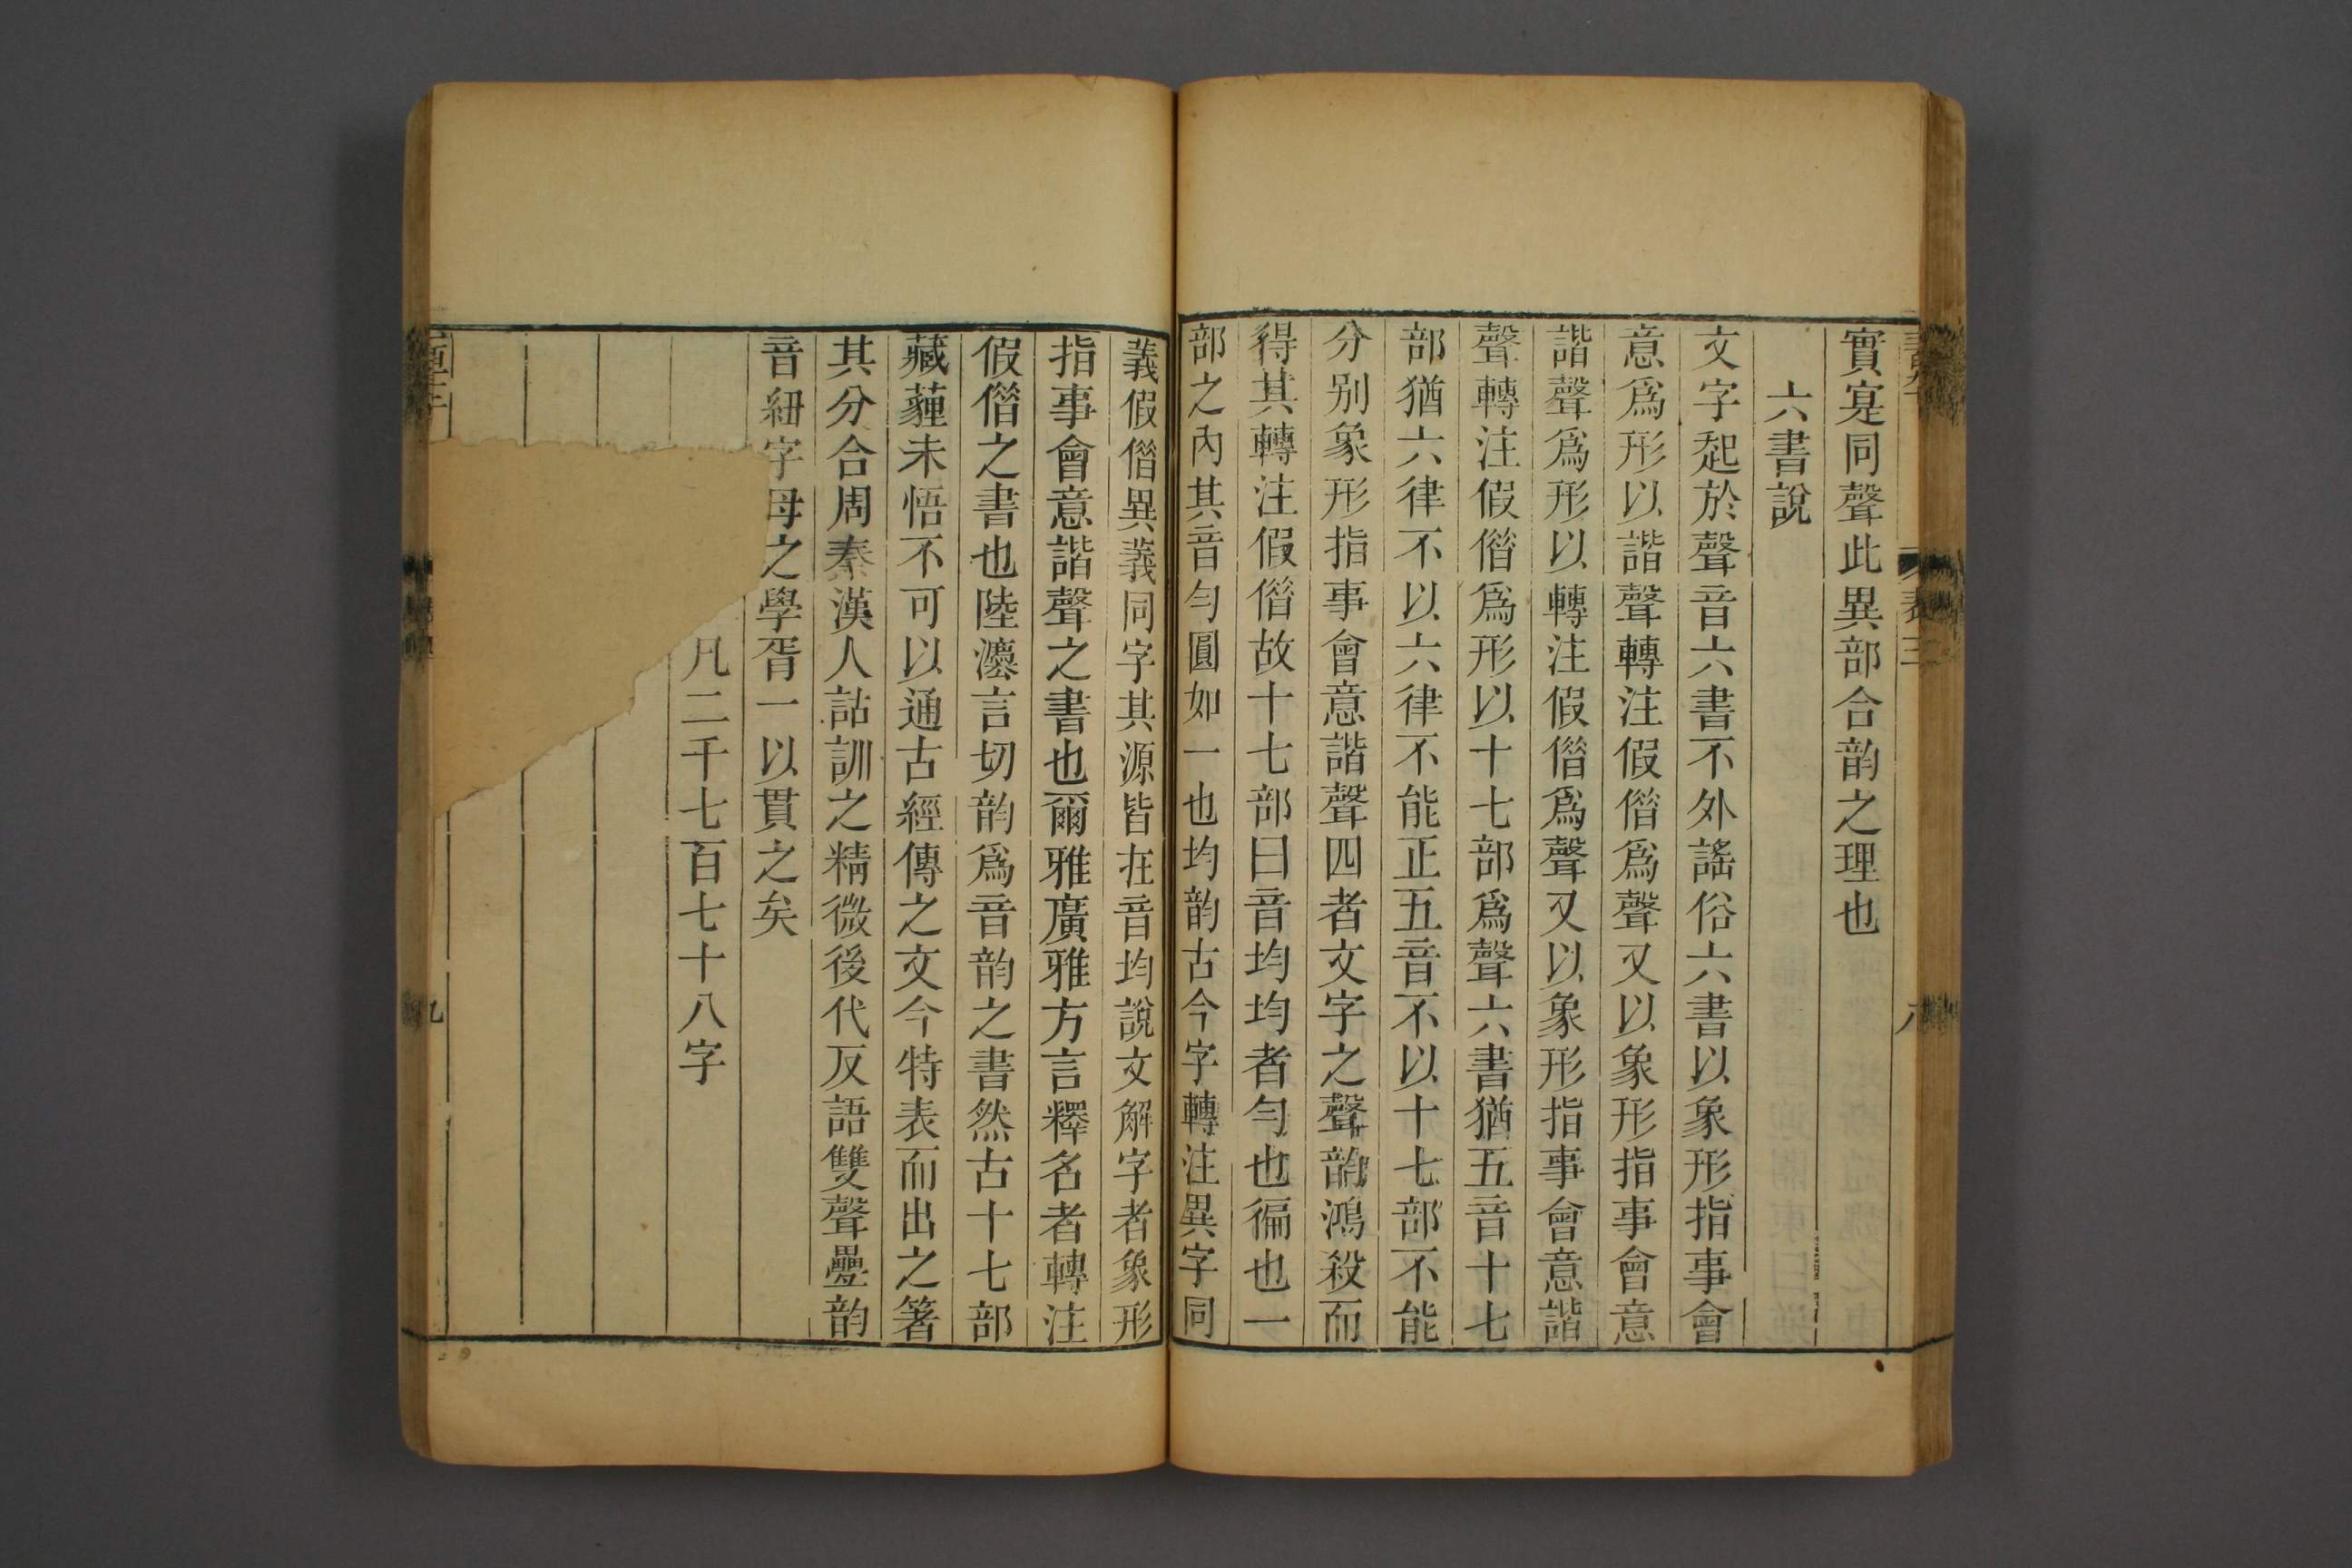 實寔同聲此異部合韵之理也
六書說
文字起於聲音六書不外謠俗六書以象形指事會
意爲形以諧聲轉注假借爲聲又以象形指事會意
諧聲爲形以轉注假借爲聲又以象形指事會意諧
聲轉注假借爲形以十七部爲聲六書猶五音十七
部猶六律不以六律不能正五音不以十七部不能
分别象形指事會意諧聲四者文字之聲韵鴻殺而
得其轉注假借故十七部曰音均均者勻也徧也一
部之內其音勻圓如一也均韵古今字轉注異字同
義假借異義同字其源皆在音均說文解字者象形
指事會意諧聲之書也爾雅廣雅方言釋名者轉注
假借之書也陸灋言切韵爲音韵之書然古十七部
藏薶未悟不可以通古經傳之文今特表而出之箸
其分合周秦漢人詁訓之精微後代反語雙聲疊韵
音紐字母之學胥一以貫之矣
凡二千七百七十八字
表三
八
九